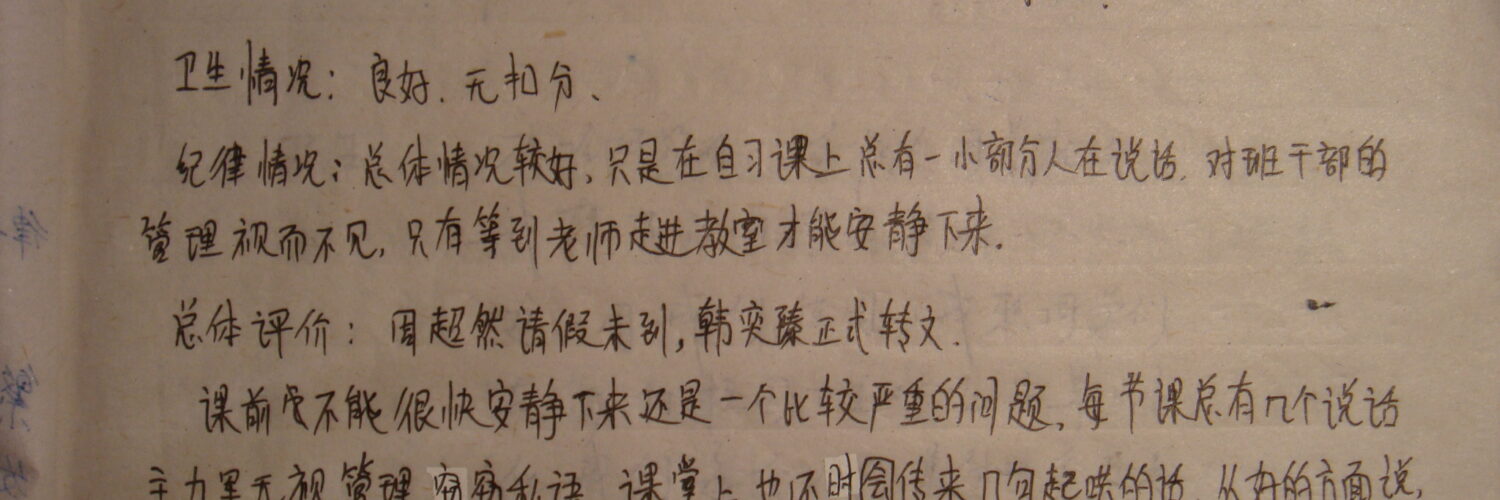 卫生情况：良好.无扣分、
纪律情况：总体情况较好,只是在自习课上总有一小部分人在说话.对班干部的
管理视而不见,只有等到老师走进教室才能安静下来.
总体评价：周超然请假未到,韩奕臻正式转文.
课前不能很快安静下来还是一个比较严重的问题.每节课总有几个说话
主力军无视管理窃窃私语.课堂上也不时会传来几句起哄的话.从好的方面说,